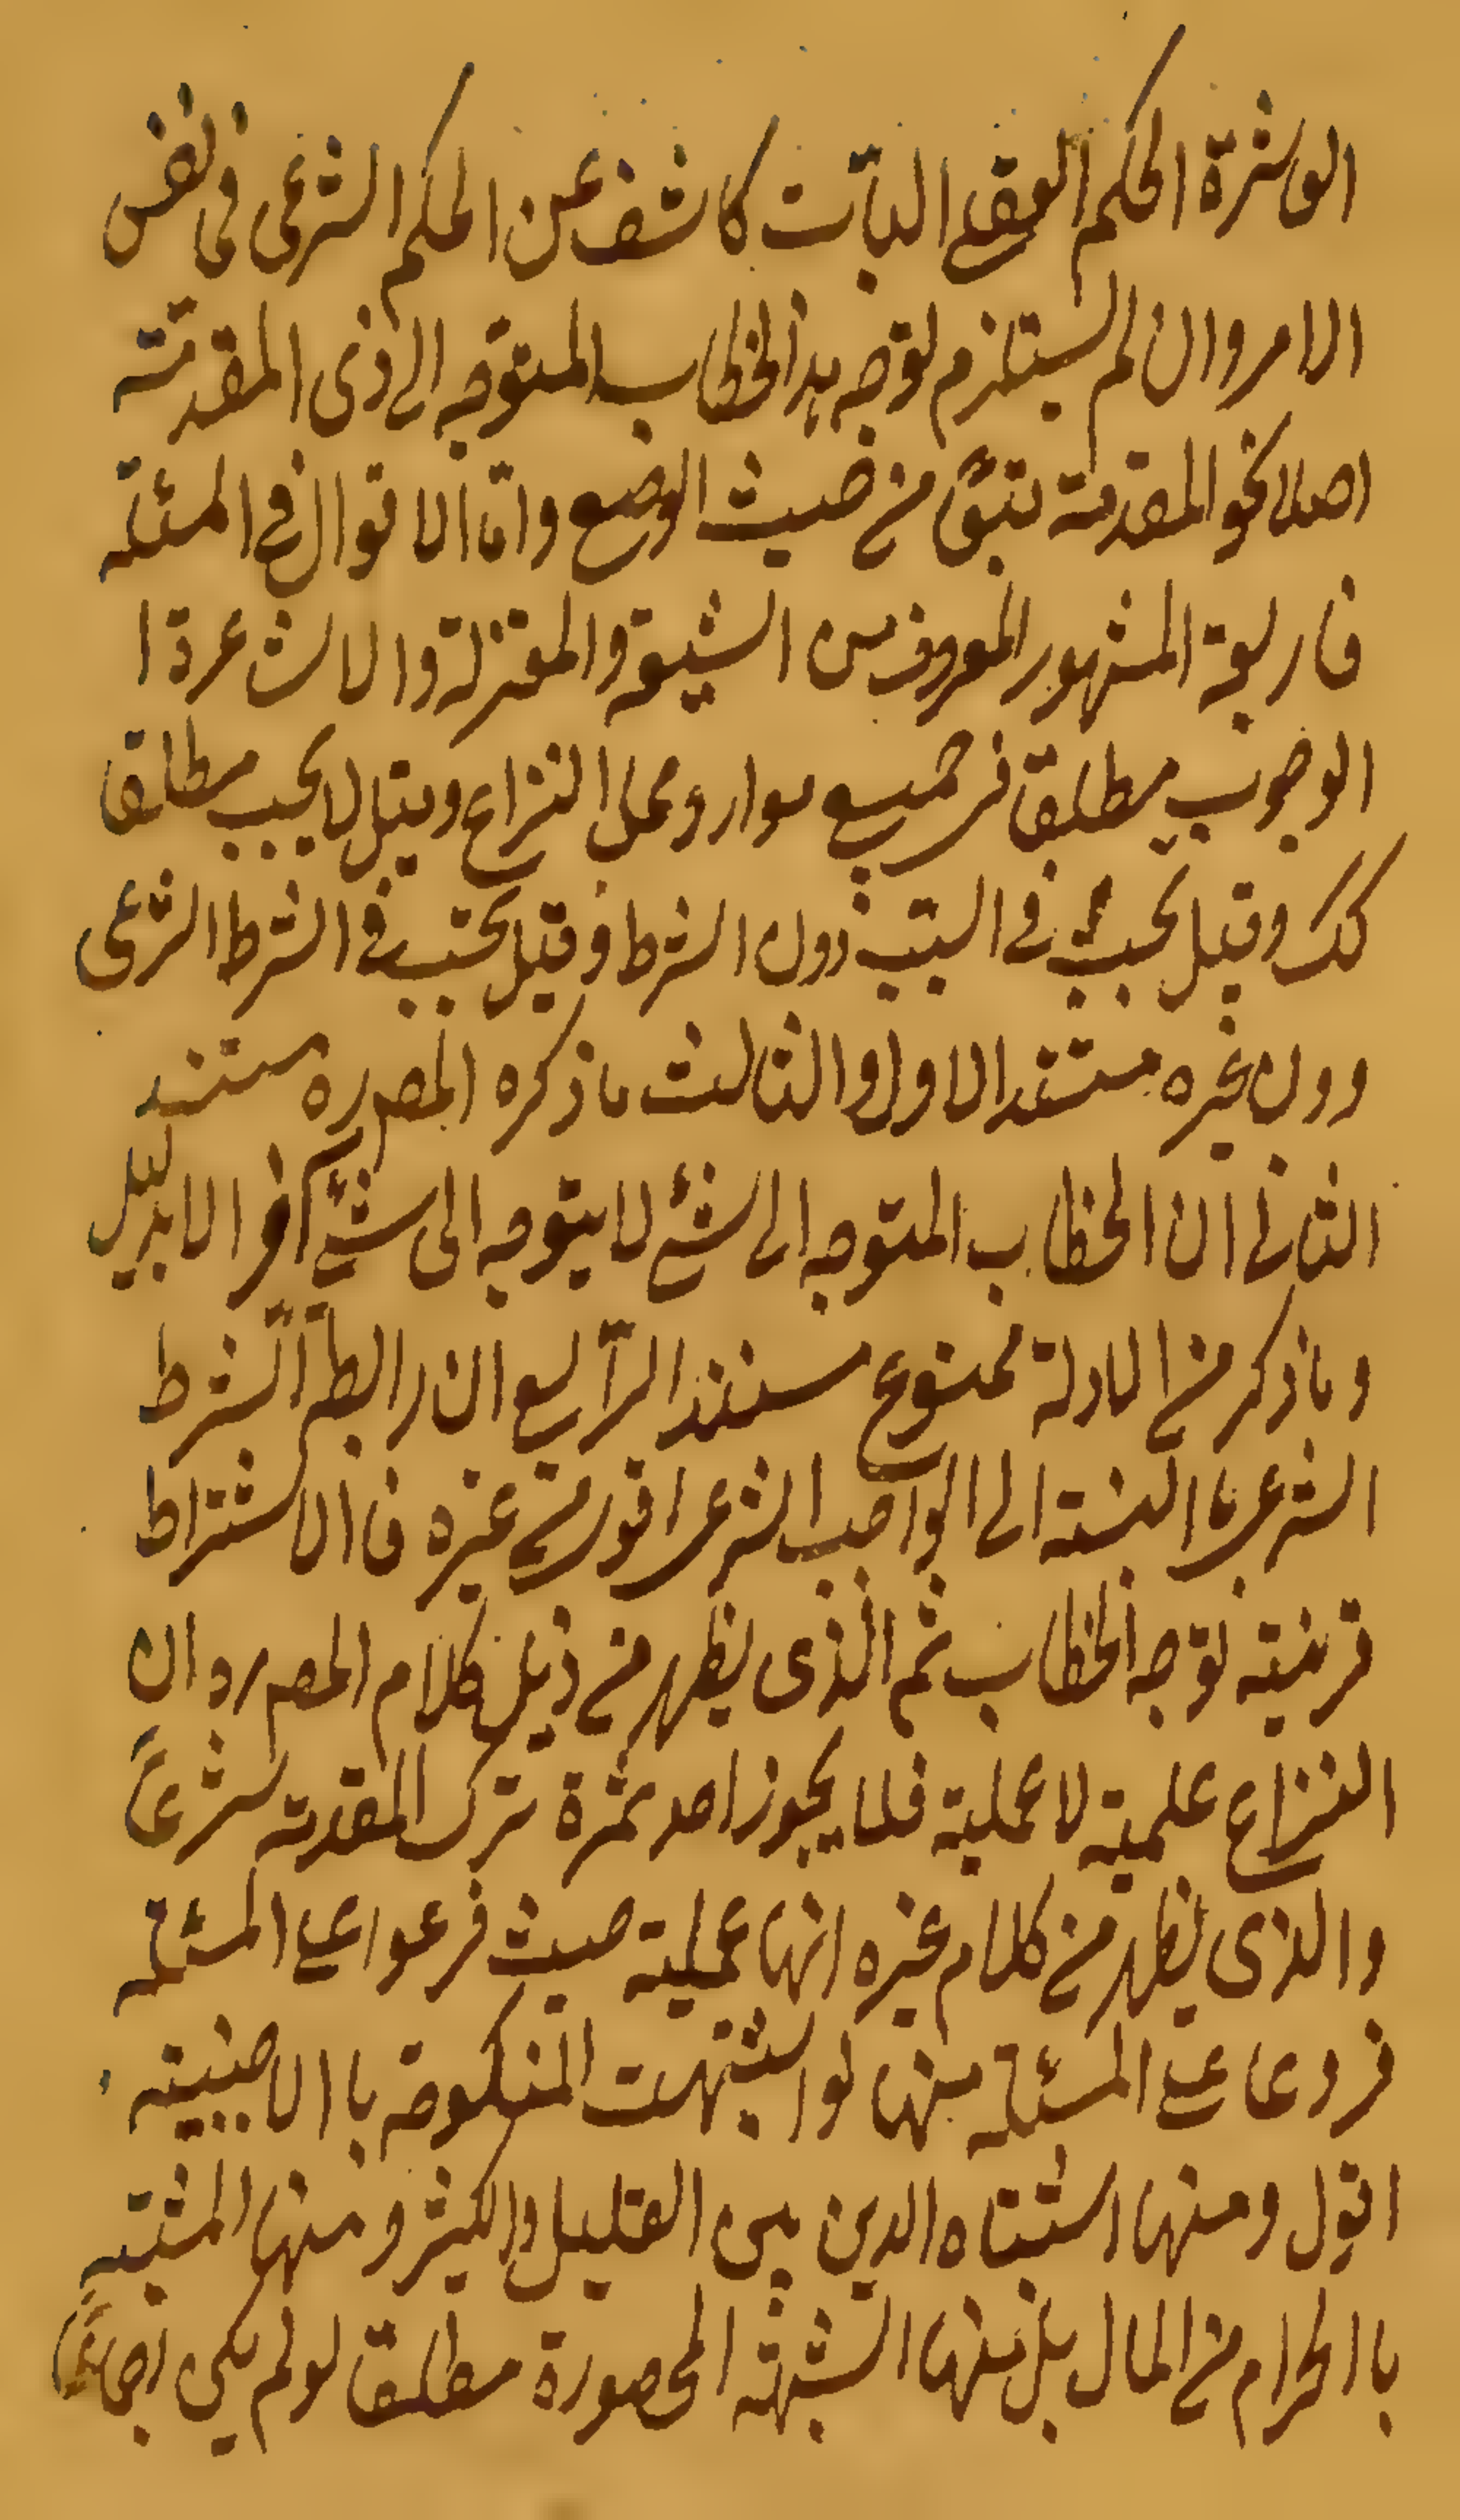 الواشرة الحكم العقلے البآت كاشف عن الحكم الشرعى فى نفس
الامر وان لم يستلزم توجه هذا الخطاب المتوجه الے ذى المقدمته
اصلا نحو المقدمة من حيث الوضع وامّا الاقوال فے المسئلة
فاربعة المشهور المعروف بين الشيعة والمعتزلة والاشاعرة ا
الوجوب مطلقا فى جميع موارد محل النزاع وقيل لا يجب مطلقا
كك وقيل يجب فے السبب دون الشرط وقيل يجب فے الشرط الشرعى
دون غيره مستند الاول والثالث ما ذكره المصره مستند
الثانے ان الخطاب المتوجه الے شئ لا يتوجه الى شئ آخر الا بدليل
وما ذكر من الادلة ممنوع مستند الرّابع ان رابطة الشرط
الشرعے با النسبة الے الواجب الشرعے اقوى من غيره فا الاشتراط
قرينة توجه الخطاب ثم الذى يظهر من ذيل كلام المصره ان
النزاع علمية لا عملية فلا يجوز احد ثمرة ترك المقدمة شرعاً
والذى يظهر من كلام غيره انها عملية حيث فرعوا عے المسئلة
فروعا عے المسئلة منها لو اشتبهت المنكوحة با الاجنبية
اقول ومنها اشتباه الدين بين القليل والكثير ومنها المشتبه
با الحرام من المال بل منها الشبهة المحصورة مطلقا لو لم يكن اجماعاً